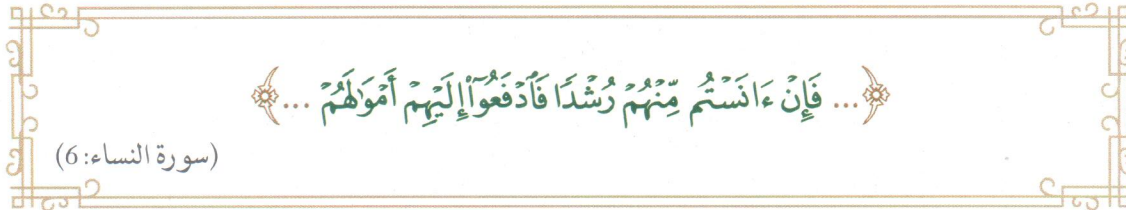 ﴿... فَإِنْ ءَانَسْتُم مِّنْهُمْ رُشْدًا فَٱدْفَعُوٓا۟ إِلَيْهِمْ أَمْوَٰلَهُمْ ...﴾
(سورة النساء: 6)